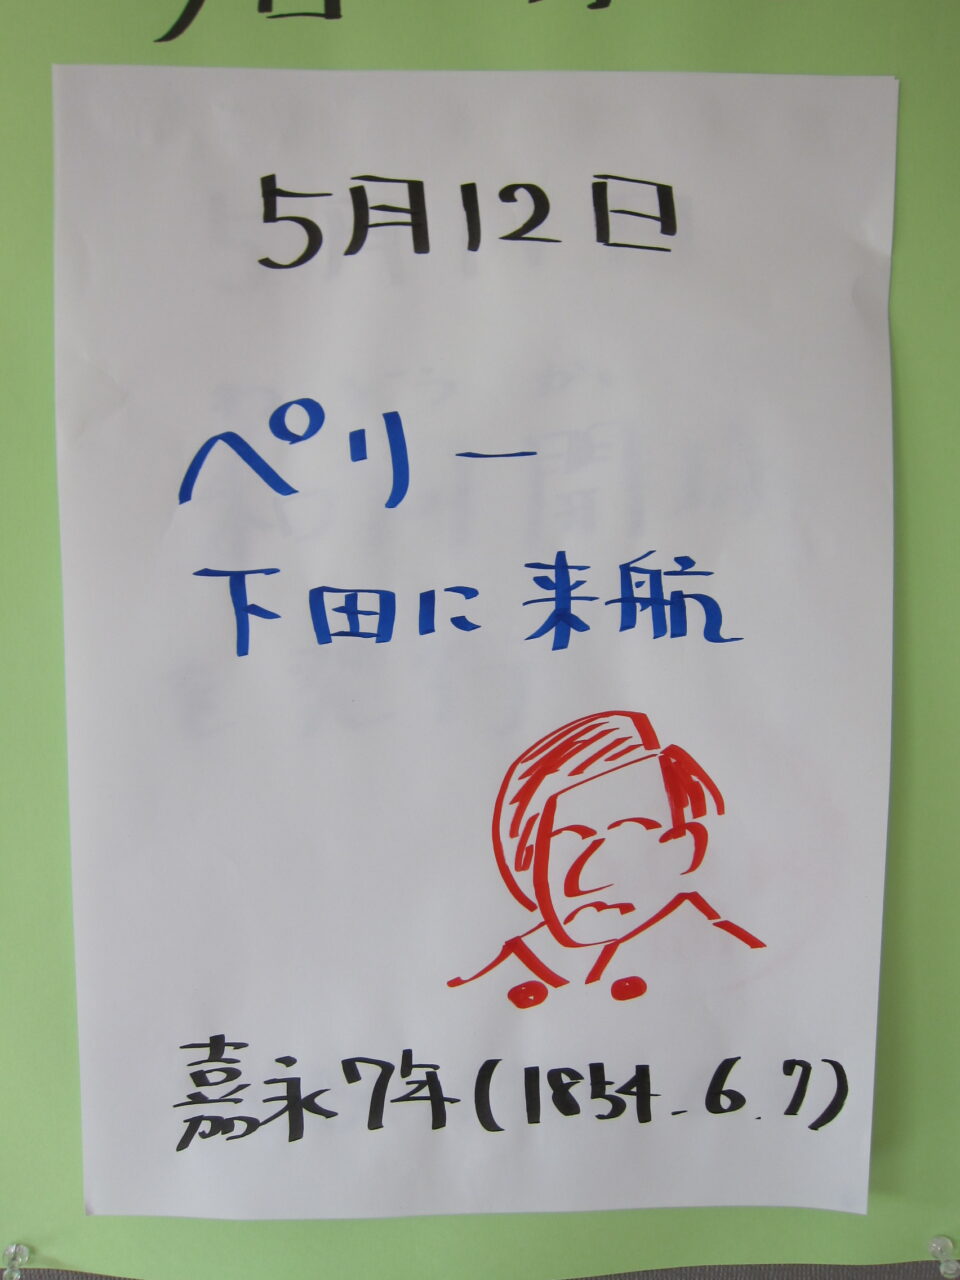 5月12日
ペリー
下田に来航
嘉永7年(1854.6.7)